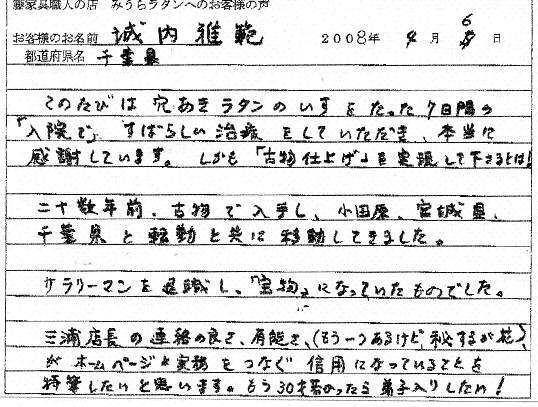 藤家具職人の店 みうらラタンへのお客様の声
お客様のお名前 城内雅範 2008年 4月 6日
都道府県名 千葉県
このたびは穴あきラタンのいすをたった7日間の
「入院で」すばらしい治療をしていただき、本当に
感謝しています。しかも「古物仕上げ」を実現して下さるとは!
二十数年前、古物で入手し、小田原、宮城県、
千葉県と転勤と共に移動してきました。
サラリーマンを退職し、「宝物」になっていたものでした。
三浦店長の連絡の良さ、有能さ、(もう一つあるけど秘するが花)
がホームページと実務をつなぐ信用になっていることを
特筆したいと思います。もう30才若かったら弟子入りしたい!